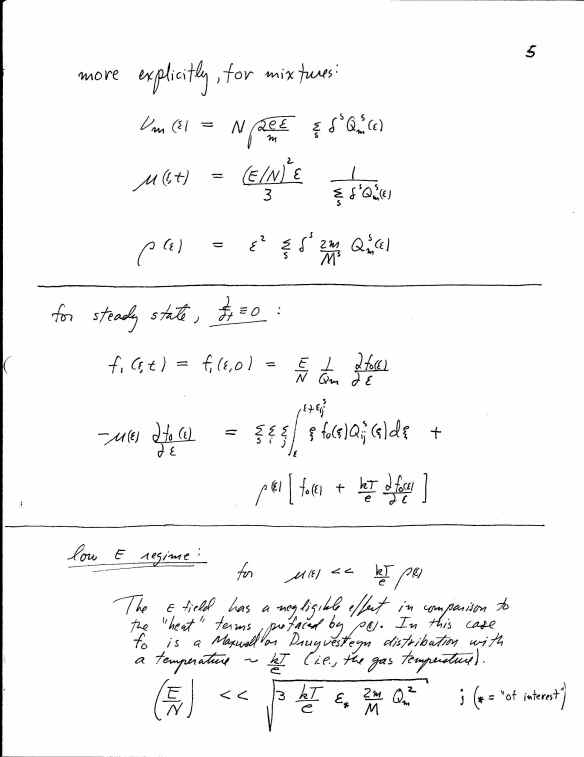 5
more explicitly, for mixtures:
νm(ε) = N √(2eε/m) Σs δ^s Qm^s(ε)
μ(ε,t) = (E/N)² ε / 3 · 1 / Σs δ^s Qm^s(ε)
ρ(ε) = ε² Σs δ^s 2m/M^s Qm^s(ε)
for steady state, ∂/∂t ≡ 0 :
f₁(ε,t) = f₁(ε,0) = E/N 1/Qm ∂f₀(ε)/∂ε
-μ(ε) ∂f₀(ε)/∂ε = Σs Σi Σj ∫ε^(ε+εij^s) ξ f₀(ξ) Qij^s(ξ) dξ +
ρ(ε) [ f₀(ε) + kT/e ∂f₀(ε)/∂ε ]
low E regime:
for μ(ε) << kT/e ρ(ε)
The E field has a negligible effect in comparison to
the "heat" terms, prefaced by ρ(ε). In this case
f₀ is a Maxwell or Druyvesteyn distribution with
a temperature ~ kT/e (i.e., the gas temperature).
(E/N) << √(3 kT/e ε* 2m/M Qm²) ; (* = "of interest")